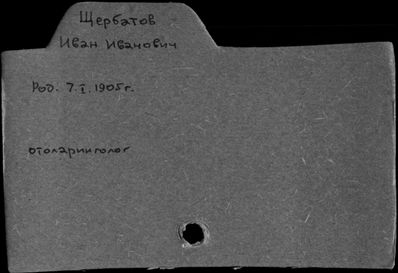 Щербатов
Иван Иванович
Род. 7.I.1905г.
отоларинголог